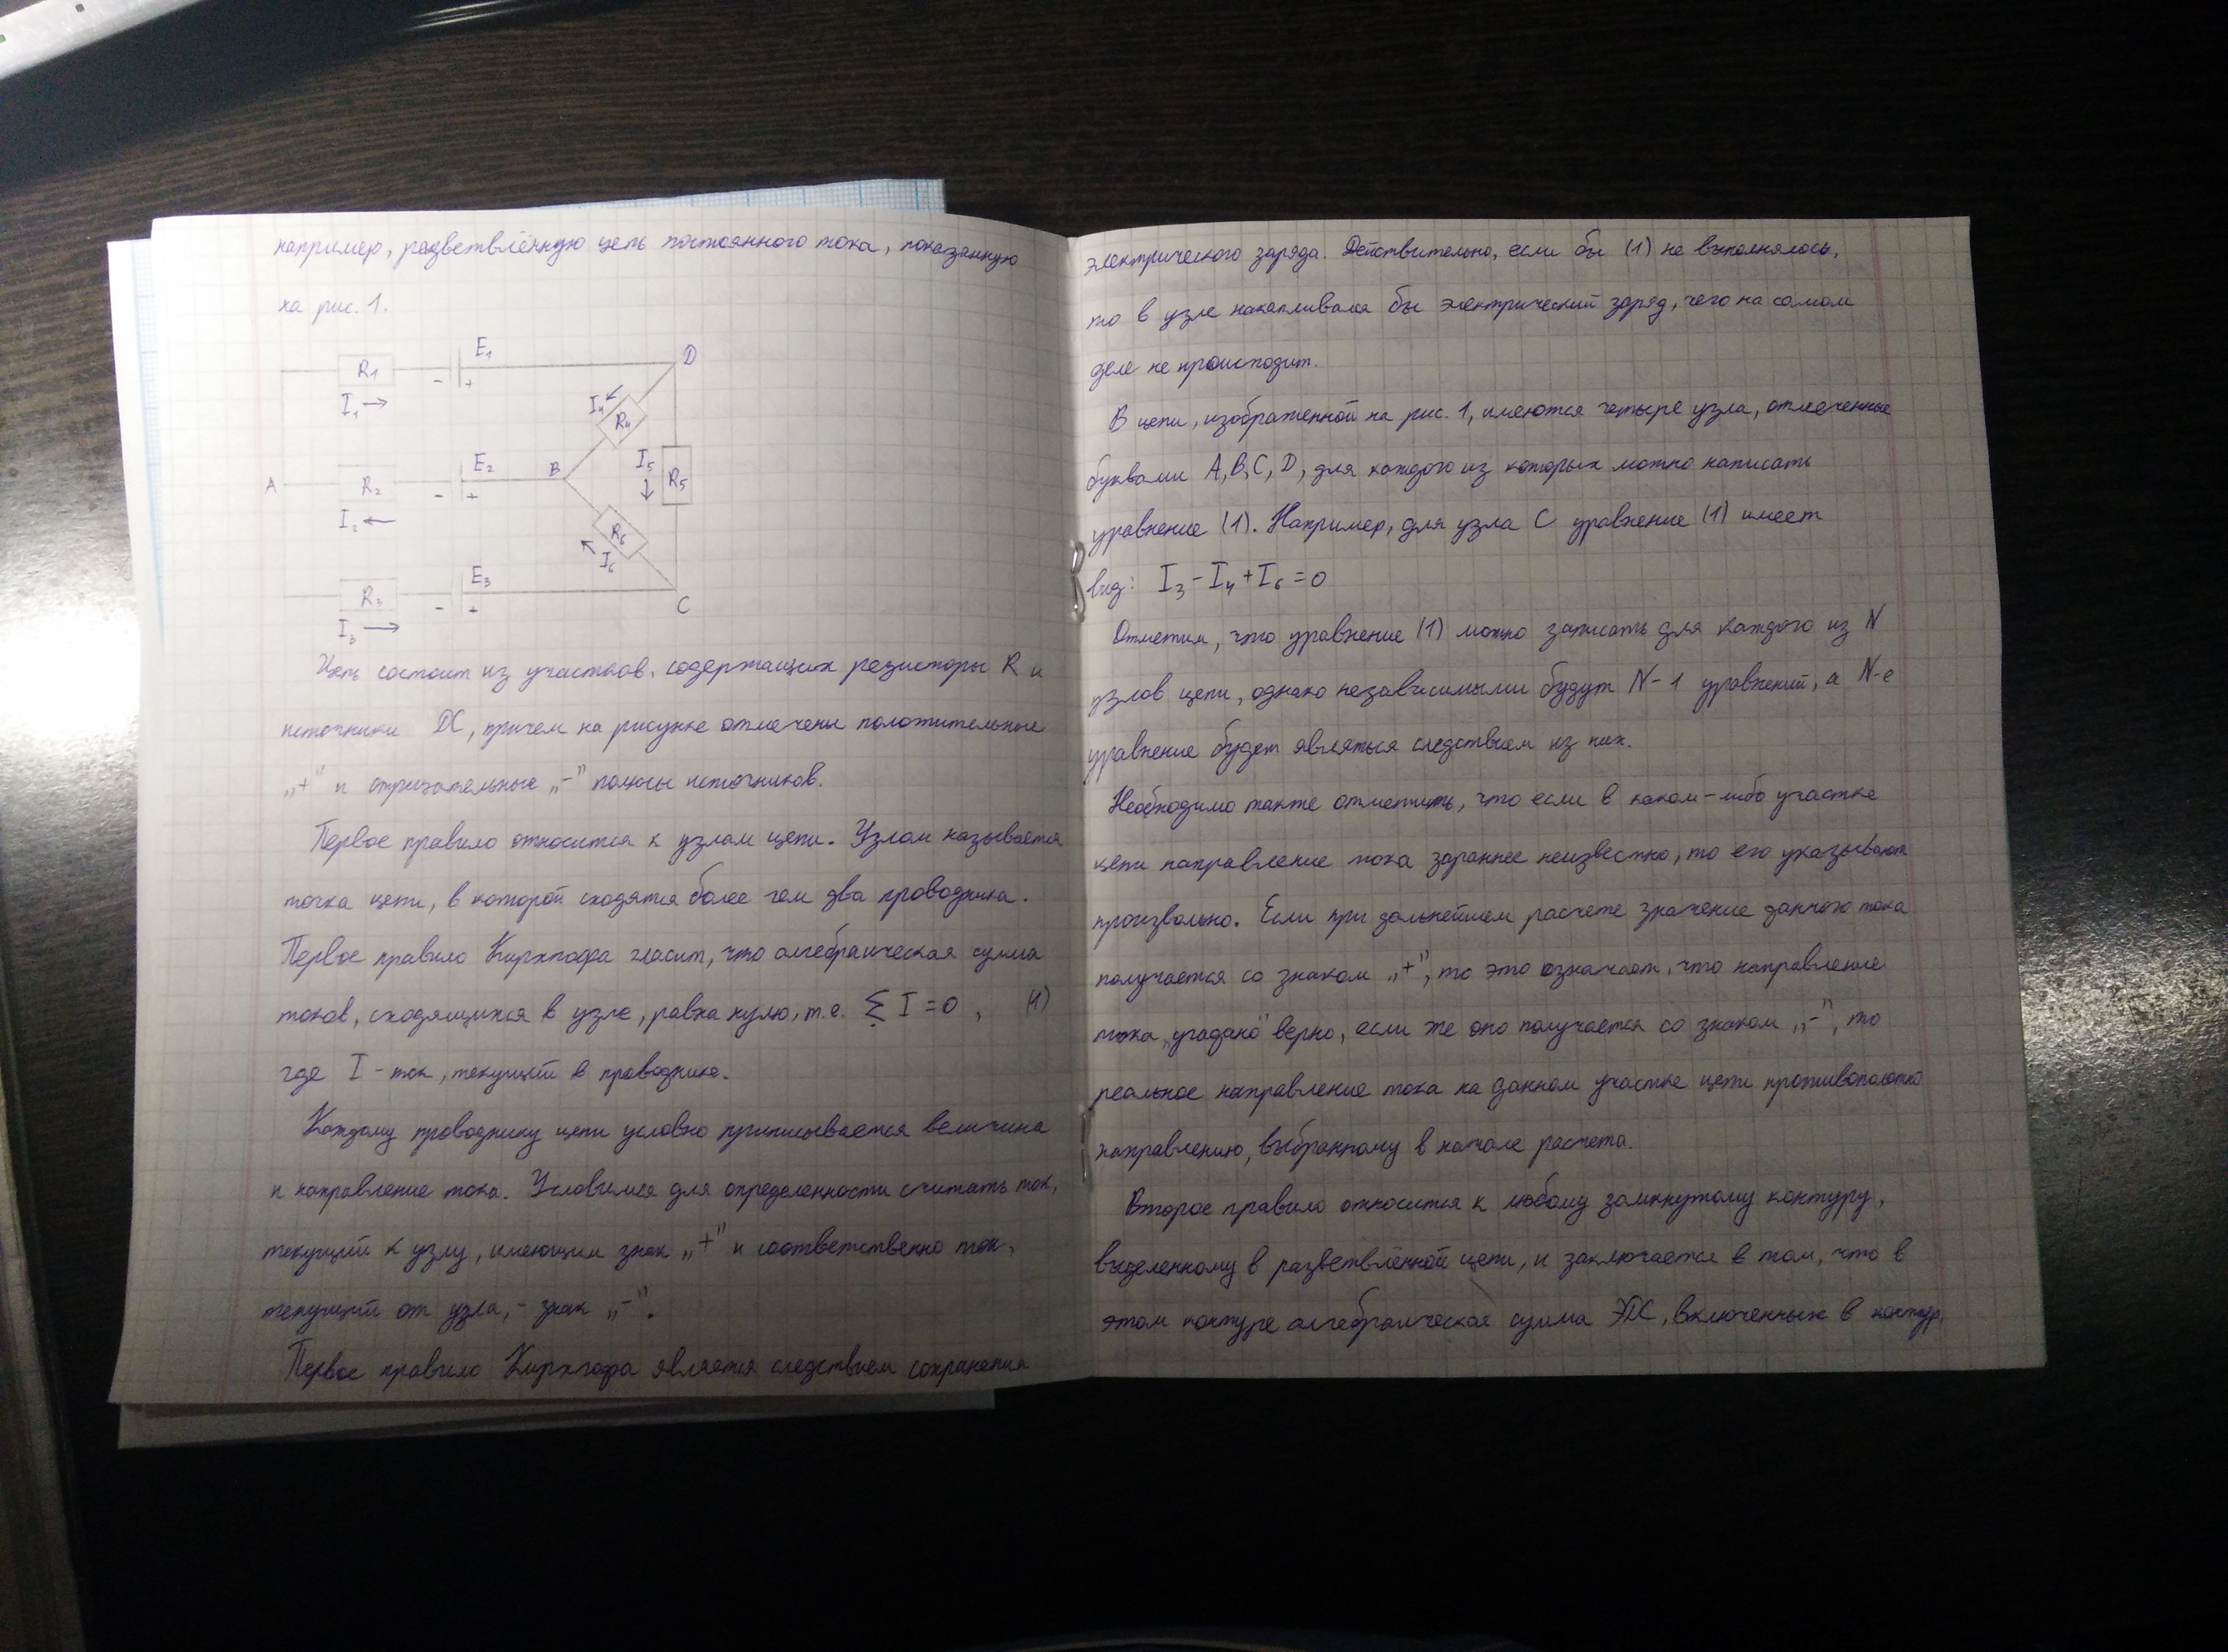 например, разветвлённую цепь постоянного тока, показанную
на рис. 1.
R1
I1 →
E1
- +
D
I4
R4
A
R2
I2 ←
E2
- +
B
I5
R5
R6
I6
R3
I3 →
E3
- +
C
Цепь состоит из участков, содержащих резисторы R и
источники ЭДС, причем на рисунке отмечены положительные
„+" и отрицательные „-" полюсы источников.
Первое правило относится к узлам цепи. Узлом называется
точка цепи, в которой сходятся более чем два проводника.
Первое правило Кирхгофа гласит, что алгебраическая сумма
токов, сходящихся в узле, равна нулю, т.е. ∑ I = 0 , (1)
где I - ток, текущий в проводнике.
Каждому проводнику цепи условно приписывается величина
и направление тока. Условимся для определенности считать ток,
текущий к узлу, имеющим знак „+" и соответственно ток,
текущий от узла, - знак „-".
Первое правило Кирхгофа является следствием сохранения
электрического заряда. Действительно, если бы (1) не выполнялось,
то в узле накапливался бы электрический заряд, чего на самом
деле не происходит.
В цепи, изображенной на рис. 1, имеются четыре узла, отмеченные
буквами A, B, C, D, для каждого из которых можно написать
уравнение (1). Например, для узла C уравнение (1) имеет
вид: I3 - I4 + I6 = 0
Отметим, что уравнение (1) можно записать для каждого из N
узлов цепи, однако независимыми будут N-1 уравнений, а N-е
уравнение будет являться следствием из них.
Необходимо также отметить, что если в каком-либо участке
цепи направление тока заранее неизвестно, то его указывают
произвольно. Если при дальнейшем расчете значение данного тока
получается со знаком „+", то это означает, что направление
тока „угадано" верно, если же оно получается со знаком „-", то
реальное направление тока на данном участке цепи противоположно
направлению, выбранному в начале расчета.
Второе правило относится к любому замкнутому контуру,
выделенному в разветвлённой цепи, и заключается в том, что в
этом контуре алгебраическая сумма ЭДС, включенных в контур,